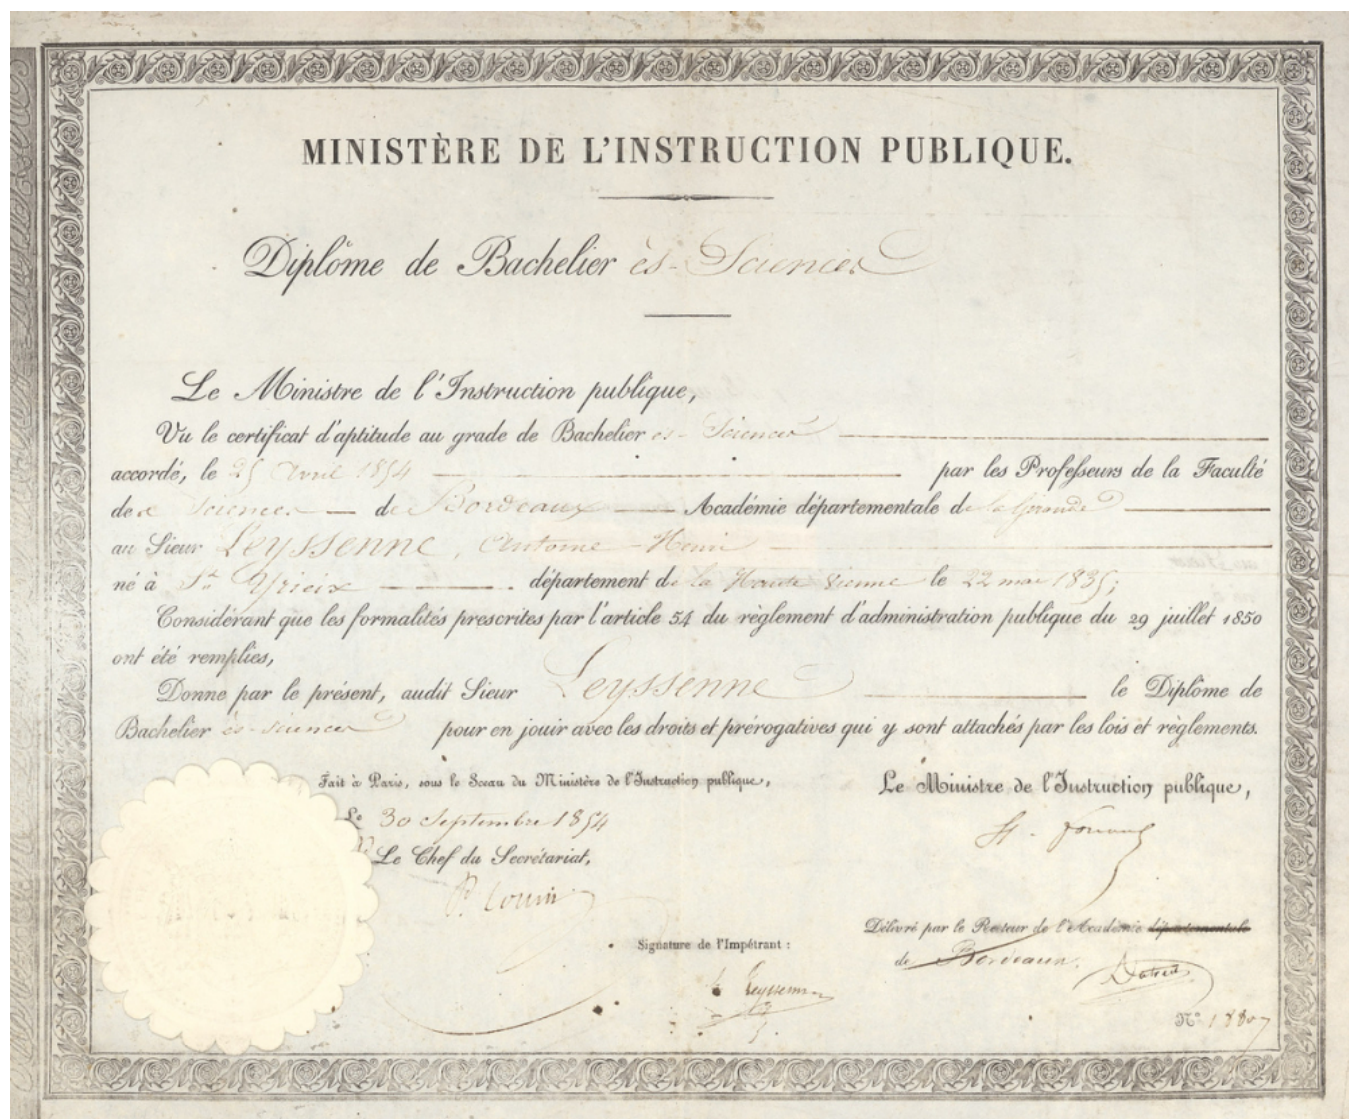 MINISTÈRE DE L'INSTRUCTION PUBLIQUE.
Diplôme de Bachelier ès-Sciences
Le Ministre de l'Instruction publique,
Vu le certificat d'aptitude au grade de Bachelier ès-Sciences
accordé, le 25 Avril 1854 par les Professeurs de la Faculté
des Sciences de Bordeaux Académie départementale de la Gironde
au Sieur Leyssenne, Antoine-Henri
né à St Yrieix département de la Haute Vienne le 22 mai 1835;
Considérant que les formalités prescrites par l'article 54 du règlement d'administration publique du 29 juillet 1850
ont été remplies,
Donne par le présent, audit Sieur Leyssenne le Diplôme de
Bachelier ès-sciences pour en jouir avec les droits et prérogatives qui y sont attachés par les lois et règlements.
Fait à Paris, sous le Sceau du Ministère de l'Instruction publique,
Le 30 Septembre 1854
Le Chef du Secrétariat,
Le Ministre de l'Instruction publique,
H. Fortoul
Délivré par le Recteur de l'Académie départementale
de Bordeaux.
Signature de l'Impétrant :
Leyssenne
N° 18807